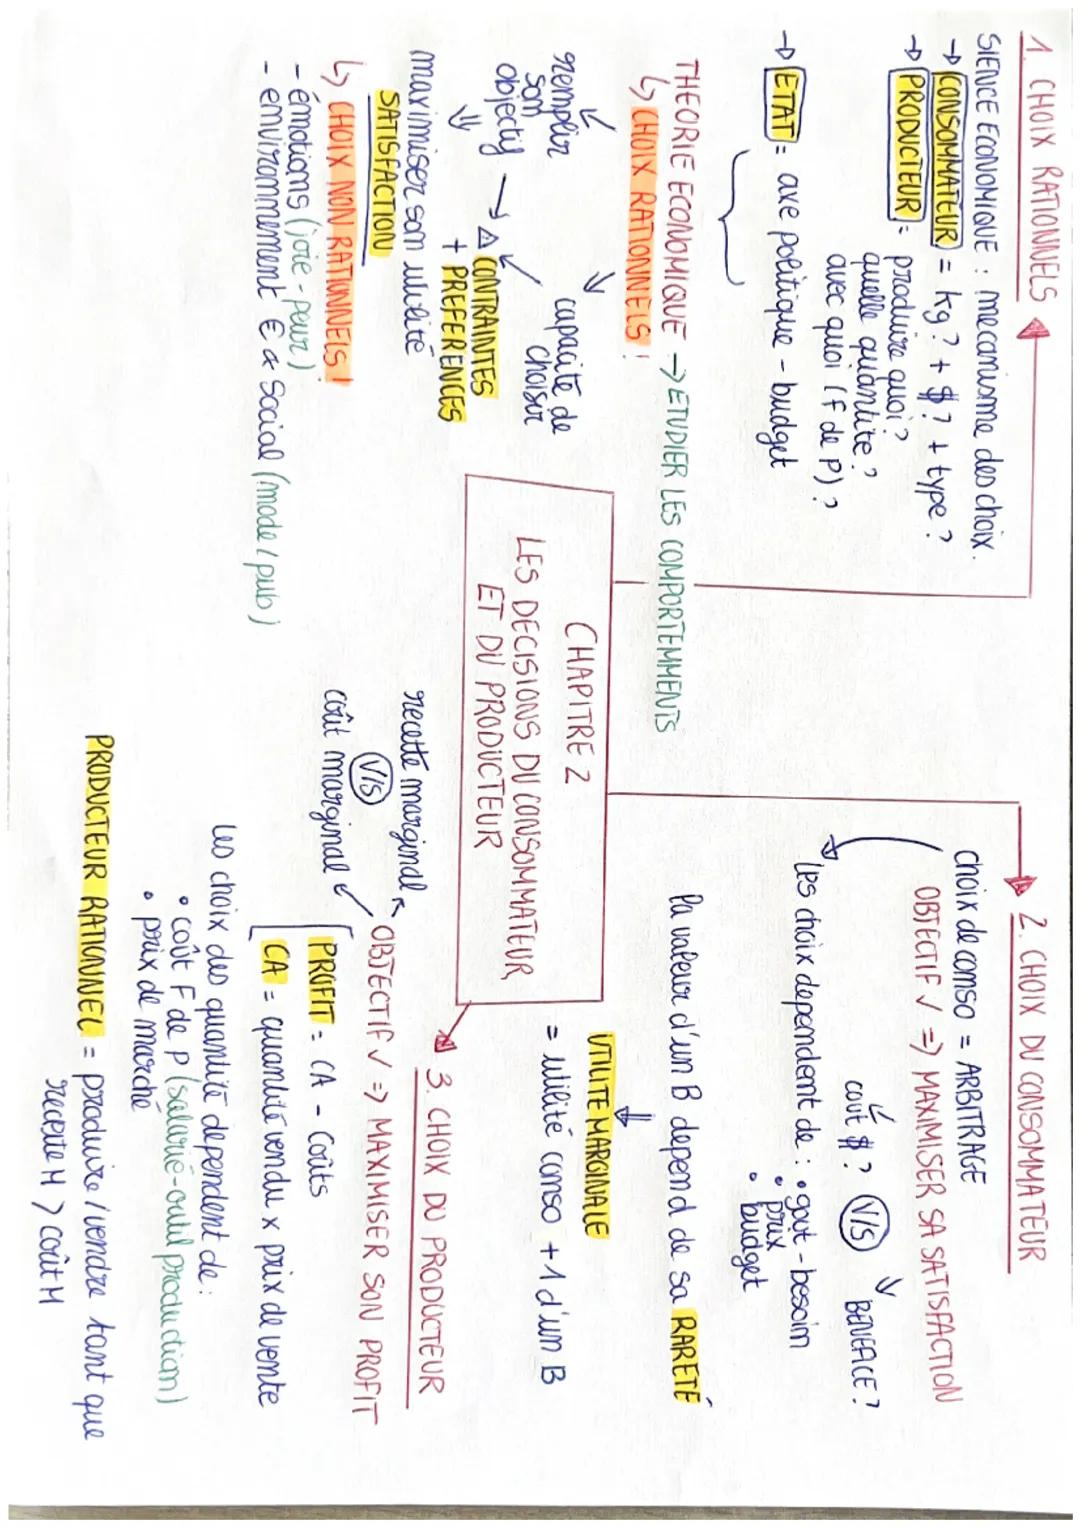 1. CHOIX RATIONNELS
SIENCE ECONOMIQUE : mecanisme des choix.
→ CONSOMMATEUR = kg? + $? + type?
→ PRODUCTEUR = produire quoi?
quelle quantité?
avec quoi (F de P)?
→ ETAT = axe politique - budget
THEORIE ECONOMIQUE → ETUDIER LES COMPORTEMMENTS
↳ CHOIX RATIONNELS!
remplir son objectif → Δ CONTRAINTES
+ PREFERENCES
capacité de choisir
⇓
maximiser son utilité
SATISFACTION
↳ CHOIX NON RATIONNELS!
- émotions (joie - peur)
- environnement € & Social (mode / pub)
CHAPITRE 2
LES DECISIONS DU CONSOMMATEUR
ET DU PRODUCTEUR
2. CHOIX DU CONSOMMATEUR
choix de conso = ARBITRAGE
OBJECTIF √ => MAXIMISER SA SATISFACTION
cout $? V/S BENEFICE?
les choix dependent de : • gout - besoin
• prix
• budget
la valeur d'un B depend de sa RARETÉ
⇓
UTILITE MARGINALE
= utilité conso + 1 d'un B
3. CHOIX DU PRODUCTEUR
OBJECTIF √ => MAXIMISER SON PROFIT
recette marginal
V/S
coût marginal
PROFIT = CA - Coûts
CA = quantité vendu x prix de vente
les choix des quantité dependent de :
• coût F de p (salarié - outil production)
• prix de marché
PRODUCTEUR RATIONNEL = produire / vendre tant que
recette M > coût M